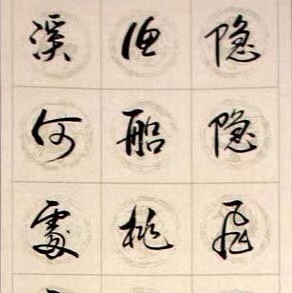 隐隐飛
渔船桃
溪何處